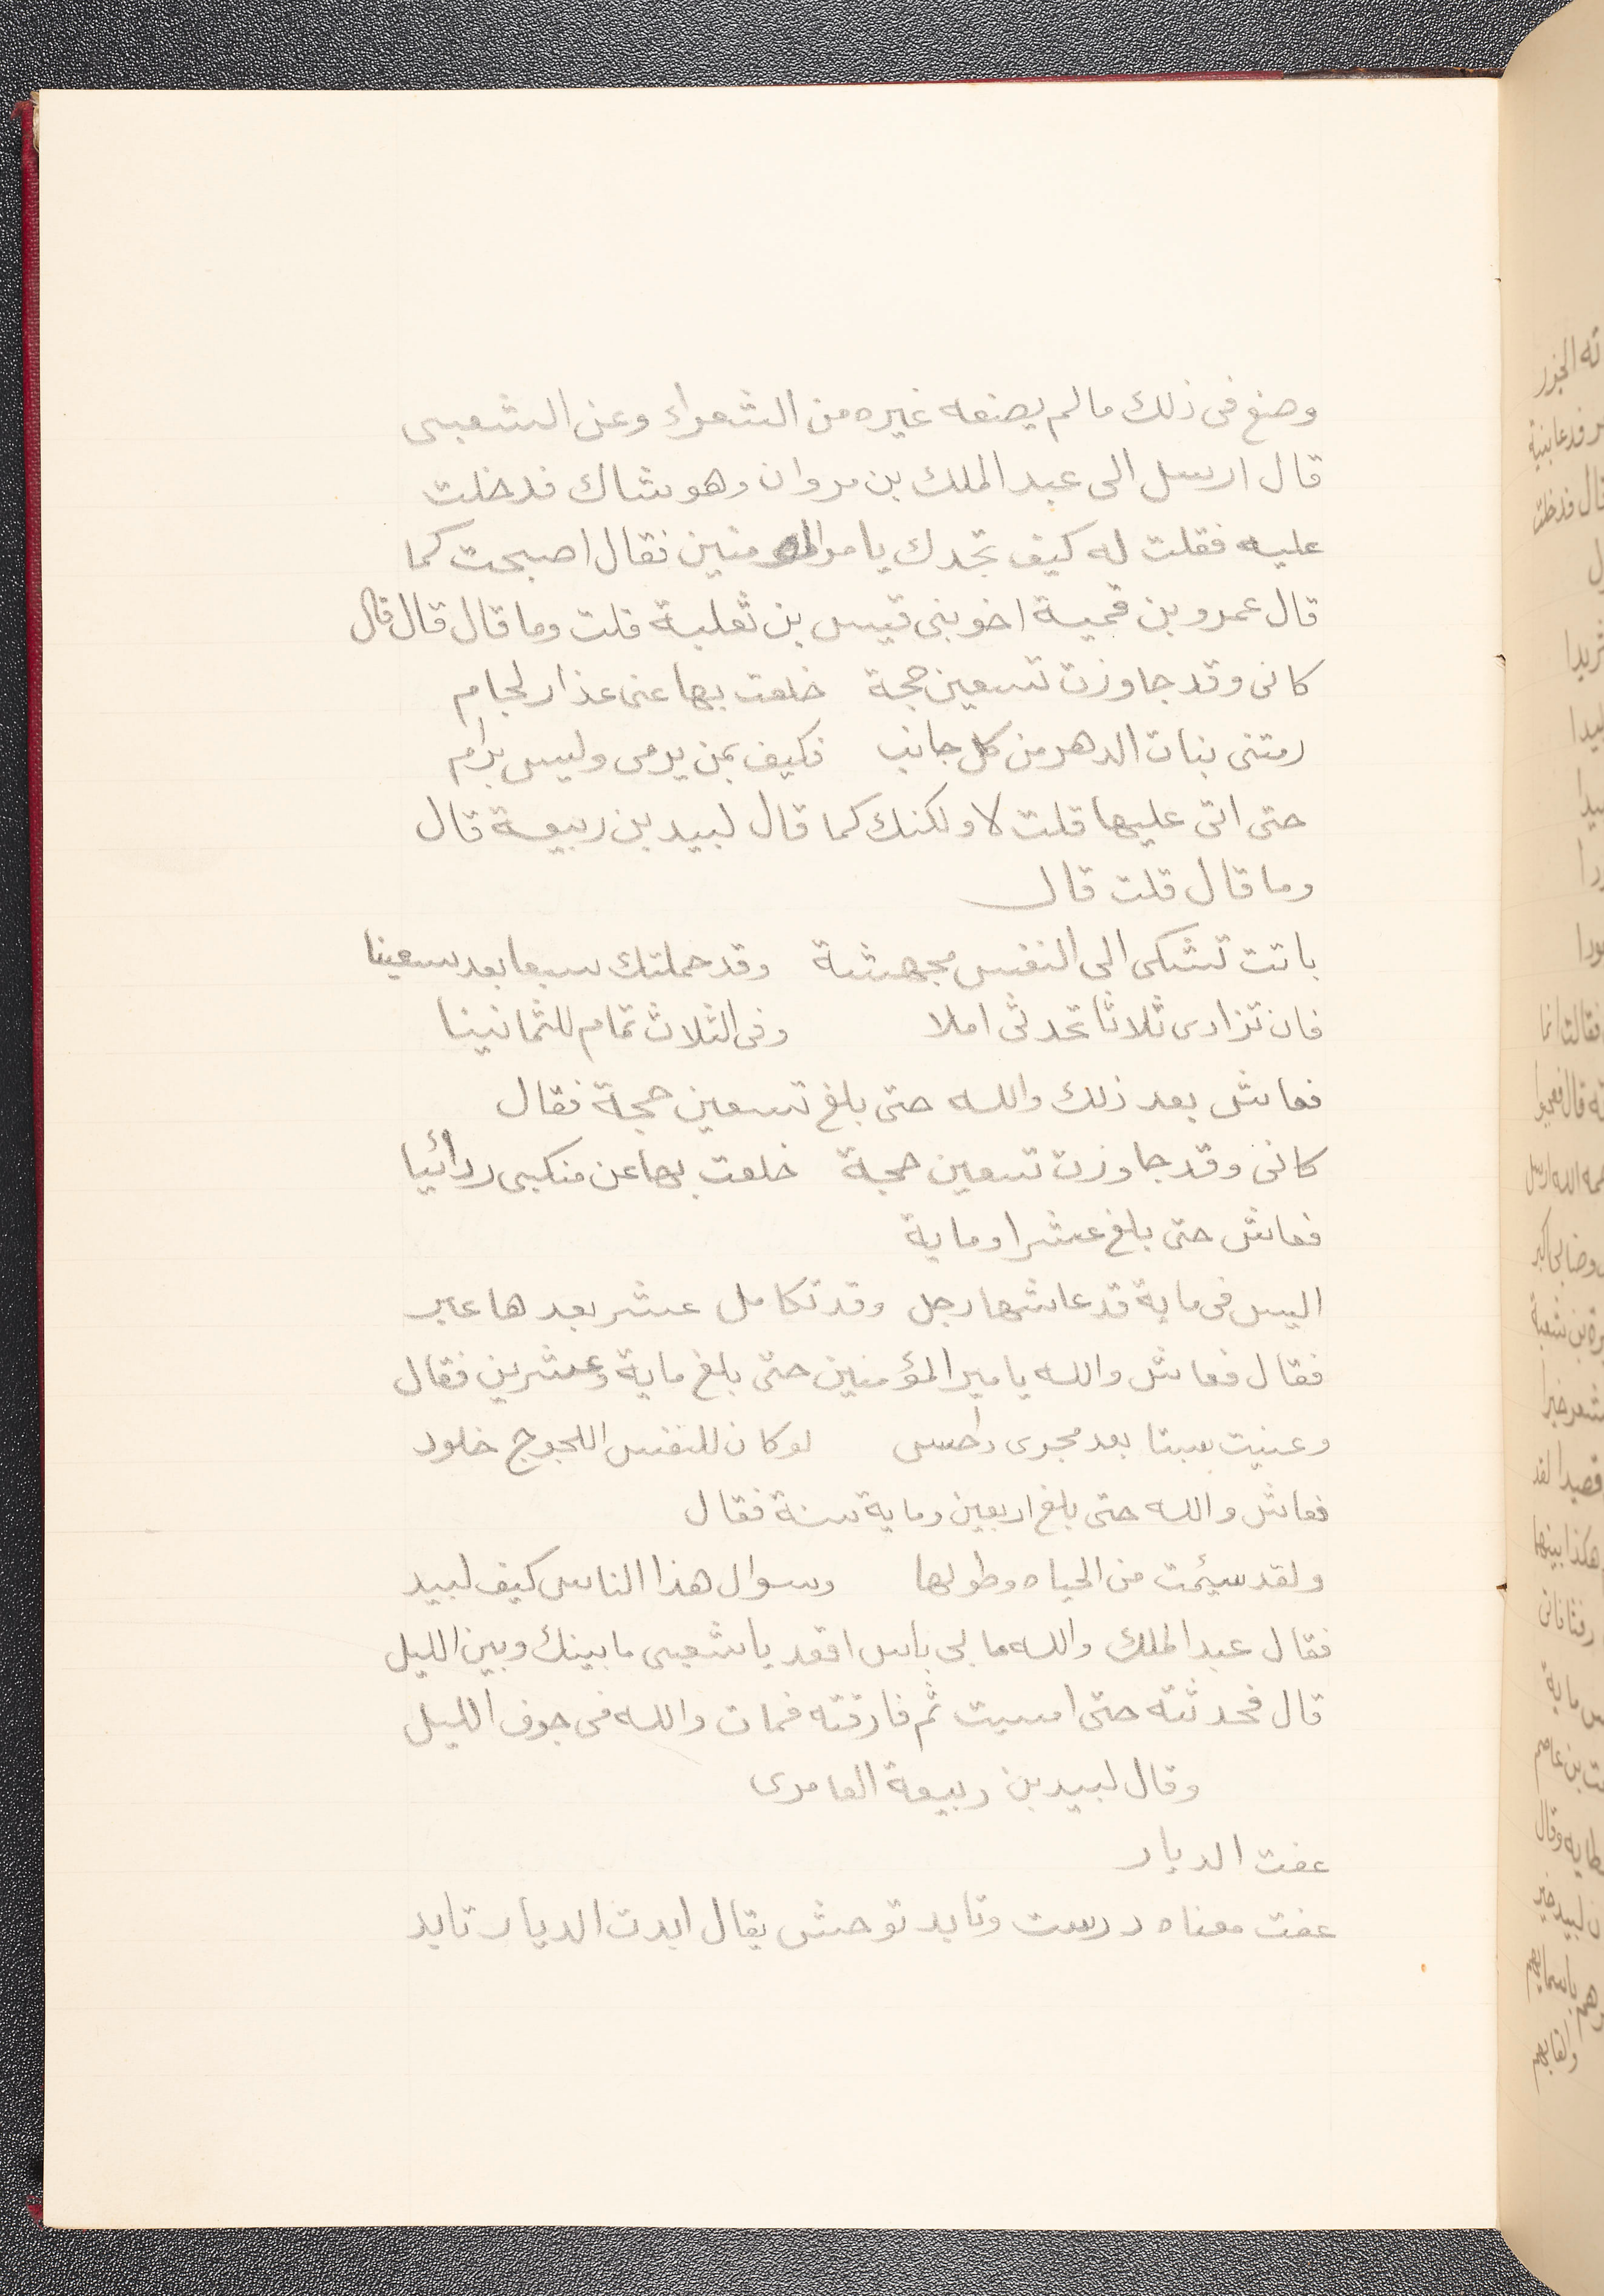 وصنع فى ذلك مالم يصنعه غيره من الشعراء وعن الشعبى
قال ارسل الى عبد الملك بن مروان وهو شاك فدخلت
عليه فقلت له كيف تجدك يا مير المومنين فقال اصبحت كما
قال عمرو بن قمية اخو بنى قيس بن ثعلبة قلت وما قال قال قال
كانى وقد جاوزت تسعين حجة خلعت بها عنى عذار لجام
رمتنى بنات الدهر من كل جانب فكيف بمن يرمى وليس برام
حتى اتى عليها قلت لا ولكنك كما قال لبيد بن ربيعة قال
وما قال قلت قال
باتت تشكى الى النفس مجهشة وقد حملتك سبعا بعد سبعينا
فان تزادى ثلاثا تحدثى املا وفى الثلاث تمام للثمانينا
فعاش بعد ذلك والله حتى بلغ تسعين حجة فقال
كانى وقد جاوزت تسعين حجة خلعت بها عن منكبى ردائيا
فعاش حتى بلغ عشرا وماية
اليس فى ماية قد عاشها رجل وقد تكامل عشر بعدها عبر
فقال فعاش والله يا مير المؤمنين حتى بلغ ماية وعشرين فقال
وعنيت سبتا بعد مجرى داحس لو كان للنفس اللجوج خلود
فعاش والله حتى بلغ اربعين وماية سنة فقال
ولقد سيئمت من الحياه وطولها وسوال هذا الناس كيف لبيد
فقال عبد الملك والله ما لى باس اقعد يا شعبى ما بينك وبين الليل
قال فحدثته حتى امسيت ثم فارقته فمات والله فى جوف الليل
وقال لبيد بن ربيعة العامرى
عفت الديار
عفت معناه درست وتابد توحش يقال ابدت الديار تابد